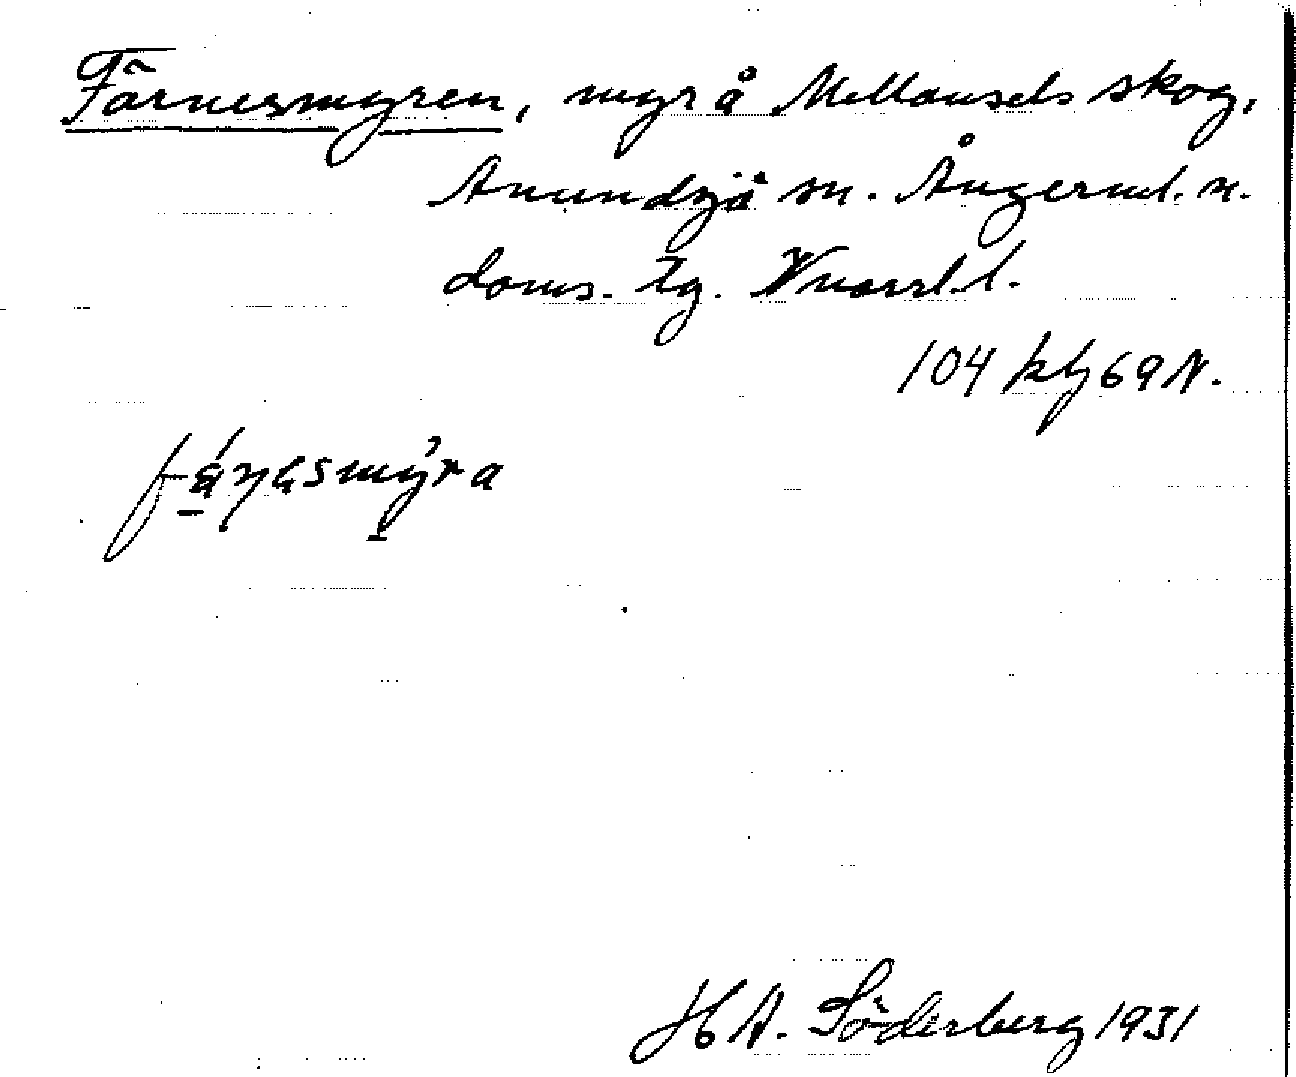 Färnesmyren, myr å Mellansels skog,
Anundsjö sn. Ångerml. n.
doms. tg. Vnorrl. l.
104 kbl 69 N.
H A. Söderberg 1931